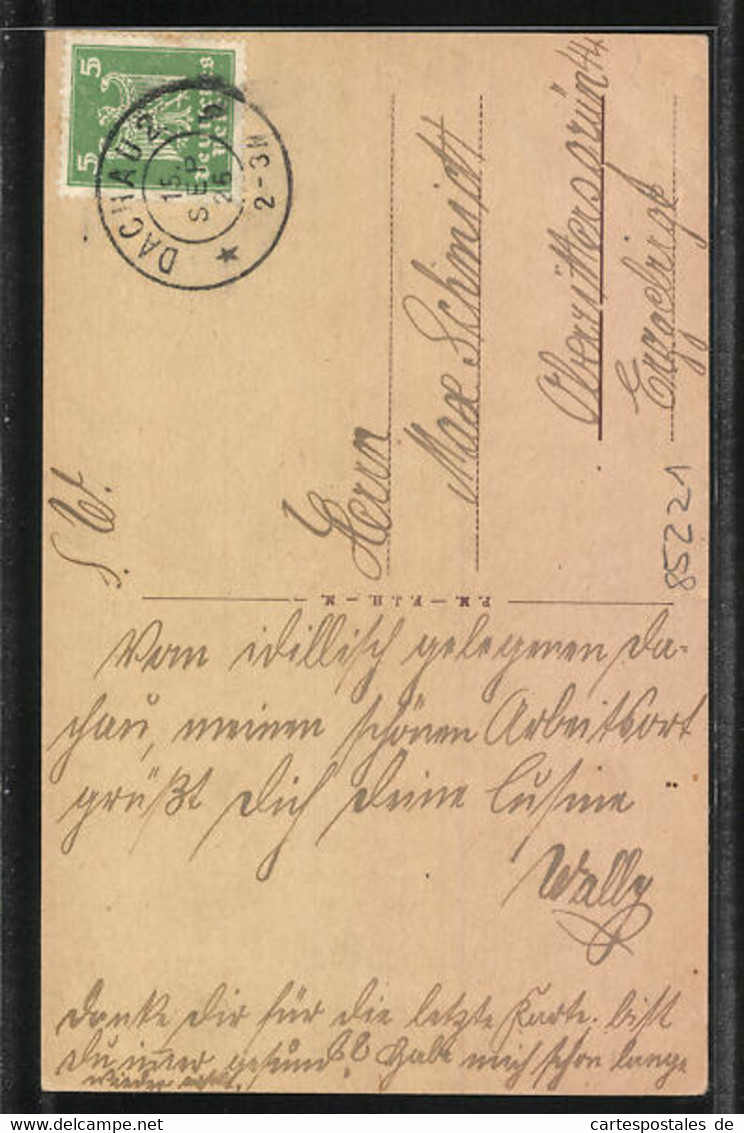 5
5
Deutsches Reich
DACHAU 2
15. SEP 26
2-3N
Herrn
Max Schmidt
Oberrittersgrün
Erzgebirge
85221
P. M. — F. J. H. — M.
Vom idillisch gelegenen Da-
chau, meinen schönen Arbeitsort
grüßt Dich Deine Cusine
Wally
Danke Dir für die letzte Karte. bist
Du immer gesund? Habe mich schon lange
wieder
cartespostales de